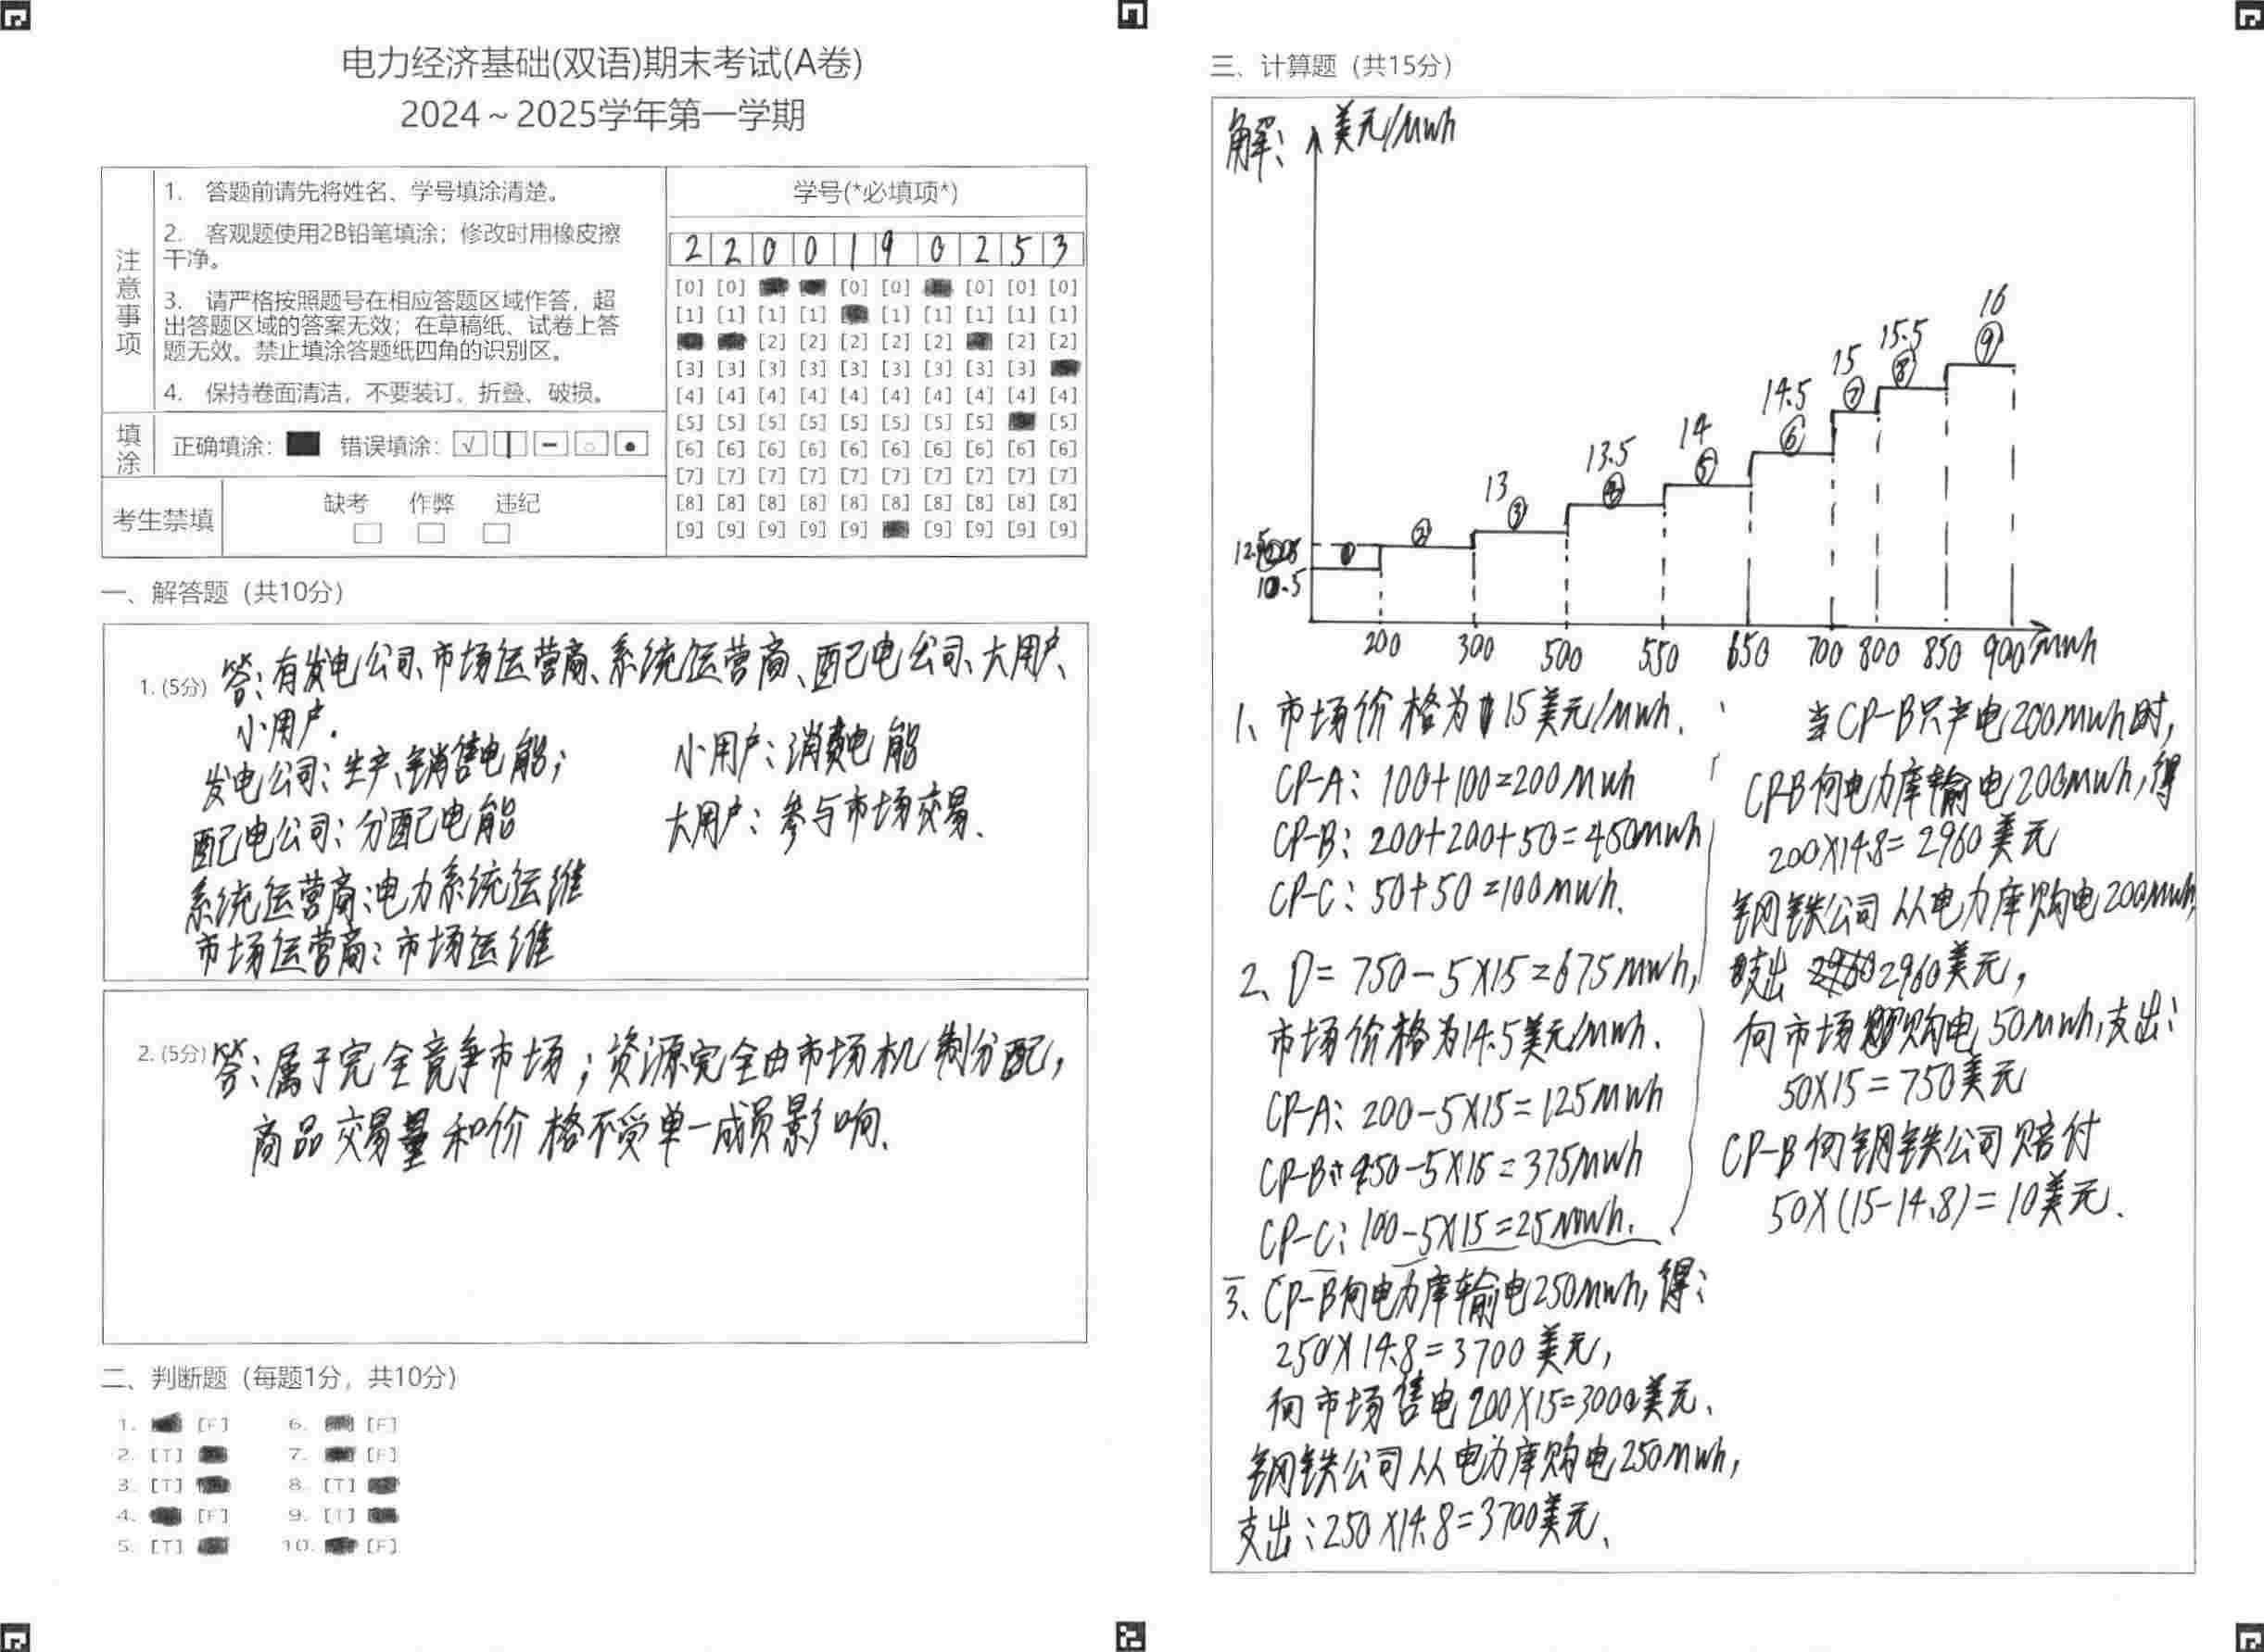 电力经济基础(双语)期末考试(A卷)
2024～2025学年第一学期
注意事项
1. 答题前请先将姓名、学号填涂清楚。
2. 客观题使用2B铅笔填涂；修改时用橡皮擦
干净。
3. 请严格按照题号在相应答题区域作答，超
出答题区域的答案无效；在草稿纸、试卷上答
题无效。禁止填涂答题纸四角的识别区。
4. 保持卷面清洁，不要装订、折叠、破损。
填涂
正确填涂： 错误填涂：
考生禁填
缺考 作弊 违纪
学号(*必填项*)
2 2 0 0 1 9 0 2 5 3
[0] [0] [0] [0] [0] [0] [0]
[1] [1] [1] [1] [1] [1] [1] [1] [1]
[2] [2] [2] [2] [2] [2] [2]
[3] [3] [3] [3] [3] [3] [3] [3] [3]
[4] [4] [4] [4] [4] [4] [4] [4] [4] [4]
[5] [5] [5] [5] [5] [5] [5] [5] [5]
[6] [6] [6] [6] [6] [6] [6] [6] [6] [6]
[7] [7] [7] [7] [7] [7] [7] [7] [7] [7]
[8] [8] [8] [8] [8] [8] [8] [8] [8] [8]
[9] [9] [9] [9] [9] [9] [9] [9] [9]
一、解答题（共10分）
1. (5分) 答：有发电公司、市场运营商、系统运营商、配电公司、大用户、
小用户.
发电公司：生产、销售电能；
配电公司：分配电能
系统运营商：电力系统运维
市场运营商：市场运维
小用户：消费电能
大用户：参与市场交易.
2. (5分) 答：属于完全竞争市场；资源完全由市场机制分配，
商品交易量和价格不受单一成员影响.
二、判断题（每题1分，共10分）
1. [F] 6. [F]
2. [T] 7. [F]
3. [T] 8. [T]
4. [F] 9. [T]
5. [T] 10. [F]
三、计算题（共15分）
解：
美元/MWh
16
⑨
15.5
⑧
15
⑦
14.5
⑥
14
⑤
13.5
④
13
③
②
①
12.5
10.5
200 300 500 550 650 700 800 850 900 MWh
1、市场价格为15美元/MWh.
CP-A：100+100=200MWh
CP-B：200+200+50=450MWh
CP-C：50+50=100MWh.
2、D=750-5×15=675MWh,
市场价格为14.5美元/MWh.
CP-A：200-5×15=125MWh
CP-B：450-5×15=375MWh
CP-C：100-5×15=25MWh.
3、CP-B向电力库输电250MWh,得：
250×14.8=3700美元,
向市场售电200×15=3000美元.
钢铁公司从电力库购电250MWh,
支出：250×14.8=3700美元.
当CP-B只产电200MWh时,
CP-B向电力库输电200MWh,得
200×14.8=2960美元
钢铁公司从电力库购电200MWh,
支出2960美元,
向市场购电50MWh,支出：
50×15=750美元
CP-B向钢铁公司赔付
50×(15-14.8)=10美元.